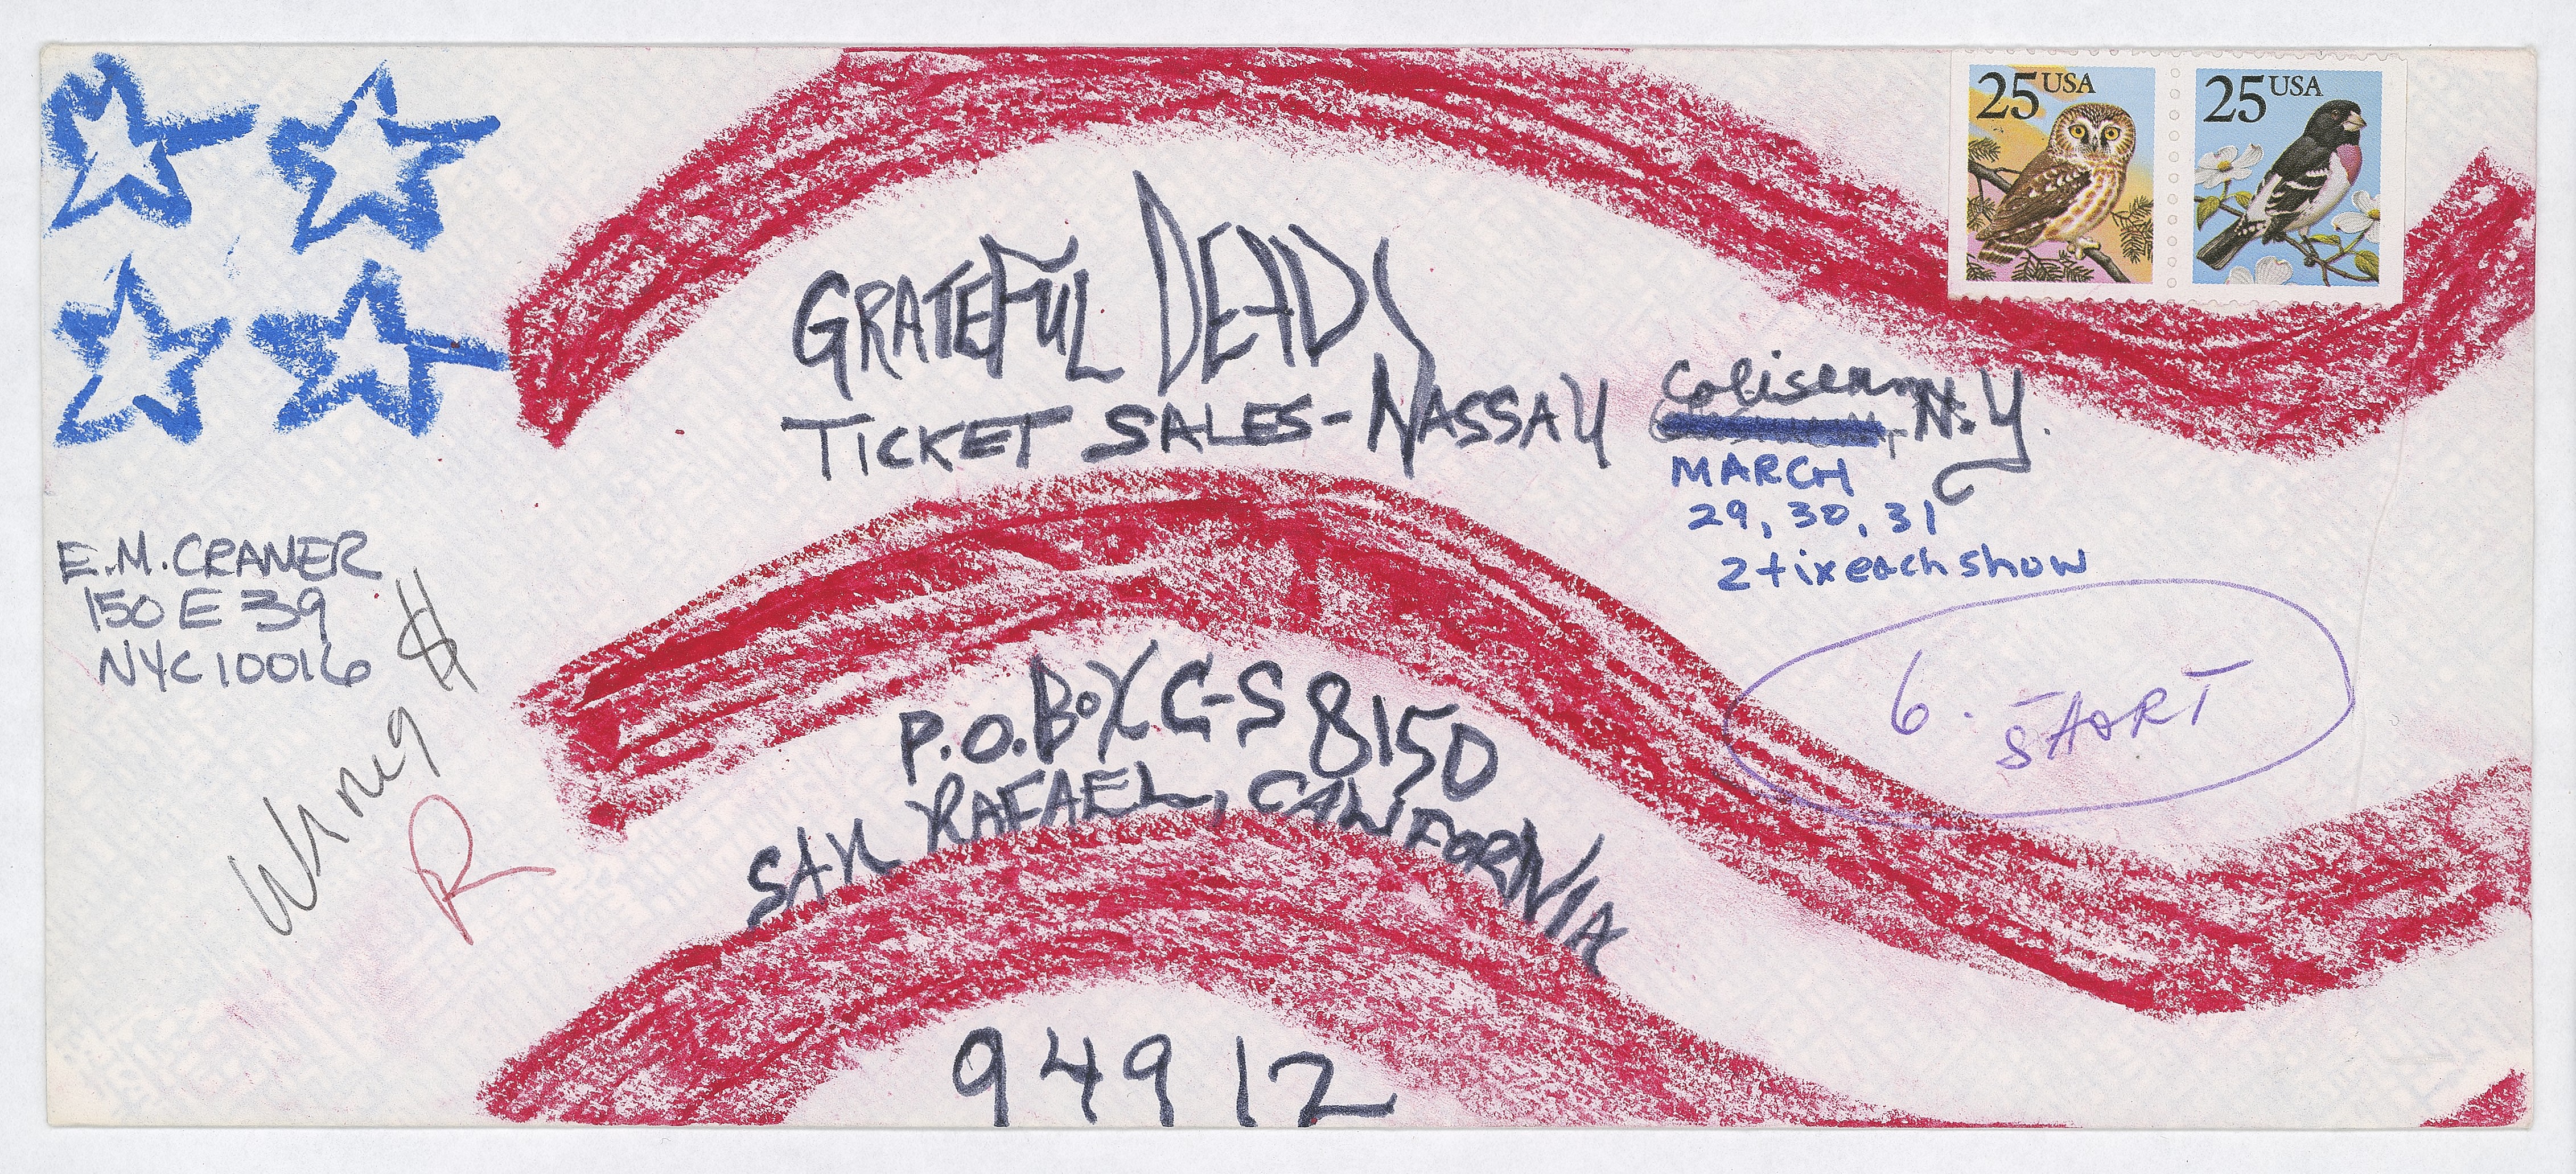 25 USA
25 USA
GRATEFUL DEAD,
TICKET SALES - NASSAU Coliseum, N.Y.
MARCH
29, 30, 31
2 tix each show
E.M. CRANER
150 E 39
NYC 10016
Wrong $
R
6. SHORT
P.O. BOX C-S 8150
SAN RAFAEL, CALIFORNIA
94912